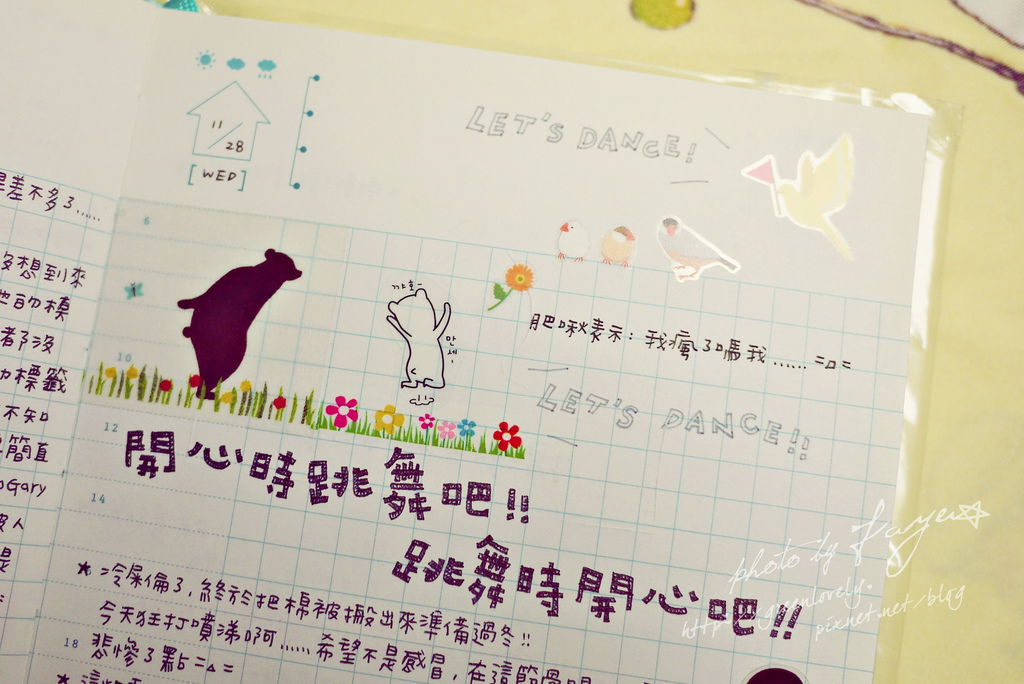 11/28
[WED]
LET'S DANCE!
差不多了......
想到來
都沒
標籤
不知
簡直
Gary
人
是
6
10
12
14
18
꺄호~
만세!
肥啾表示：我瘋了嗎我......=□=
LET'S DANCE!!
開心時跳舞吧!!
跳舞時開心吧!!
★冷屎倫了,終於把棉被搬出來準備過冬!!
今天狂打噴涕啊......希望不是感冒,在這節骨
悲慘了點=□=
photo by Fayew☆
http://greenlovely.
pixnet.net/blog